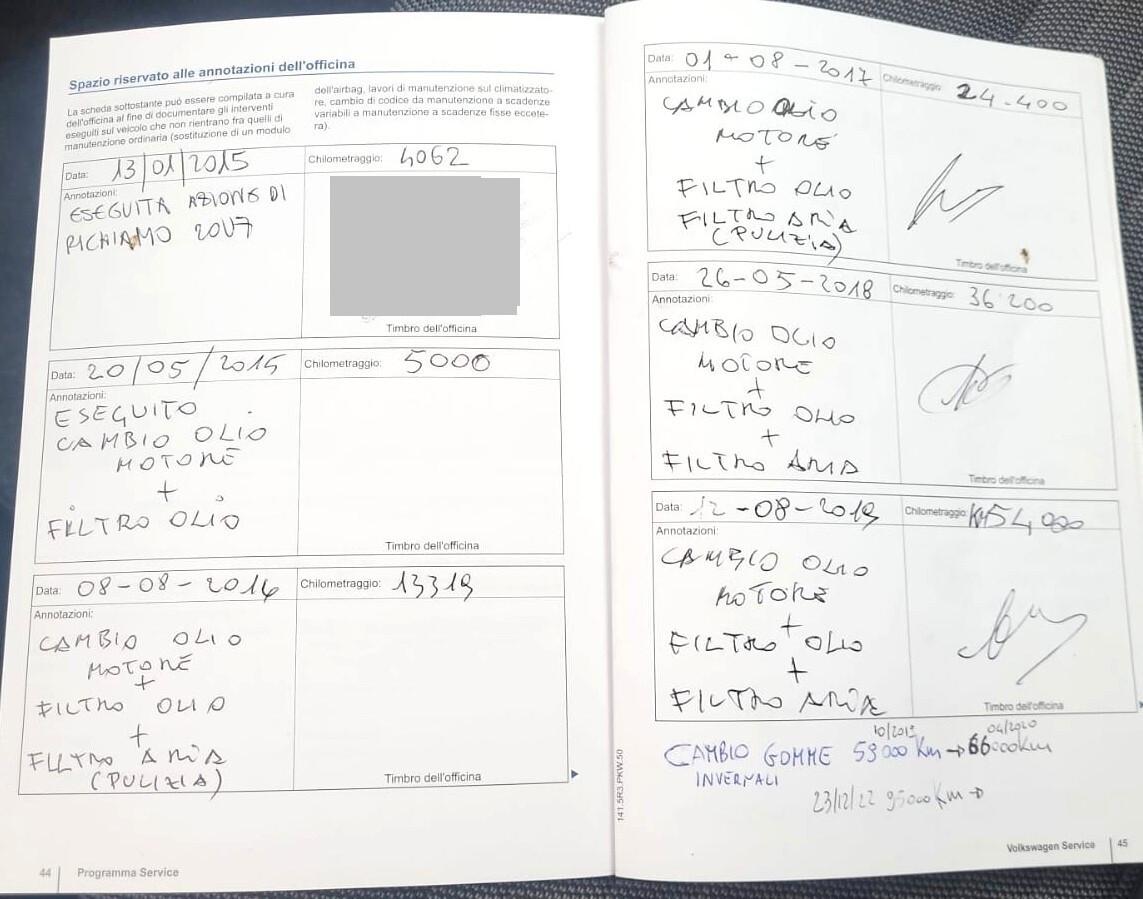 Spazio riservato alle annotazioni dell'officina
La scheda sottostante può essere compilata a cura
dell'officina al fine di documentare gli interventi
eseguiti sul veicolo che non rientrano fra quelli di
manutenzione ordinaria (sostituzione di un modulo
dell'airbag, lavori di manutenzione sul climatizzato-
re, cambio di codice da manutenzione a scadenze
variabili a manutenzione a scadenze fisse eccete-
ra).
Data: 13/01/2015 Chilometraggio: 4062
Annotazioni:
ESEGUITA AZIONE DI
RICHIAMO 20U7
Timbro dell'officina
Data: 20/05/2015 Chilometraggio: 5000
Annotazioni:
ESEGUITO
CAMBIO OLIO
MOTORE
+
FILTRO OLIO
Timbro dell'officina
Data: 08-08-2016 Chilometraggio: 13319
Annotazioni:
CAMBIO OLIO
MOTORE
+
FILTRO OLIO
+
FILTRO ARIA
(PULIZIA)
Timbro dell'officina
44 Programma Service
Data: 01-08-2017 Chilometraggio: 24.400
Annotazioni:
CAMBIO OLIO
MOTORE
+
FILTRO OLIO
FILTRO ARIA
(PULIZIA)
Timbro dell'officina
Data: 26-05-2018 Chilometraggio: 36200
Annotazioni:
CAMBIO OLIO
MOTORE
+
FILTRO OLIO
+
FILTRO ARIA
Timbro dell'officina
Data: 12-08-2019 Chilometraggio: KM54,000
Annotazioni:
CAMBIO OLIO
MOTORE
+
FILTRO OLIO
+
FILTRO ARIA
Timbro dell'officina
10/2019 04/2020
CAMBIO GOMME 59000 Km → 66000Km
INVERNALI
23/12/22 95000Km →
141.5R3.PKW.50
Volkswagen Service 45